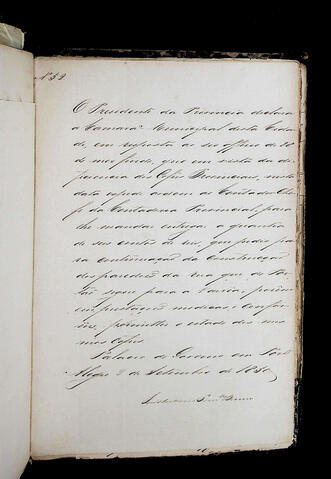 N. 52
O Presidente da Provincia declara
a Camara Municipal desta Cida
de, em resposta ao seo officio de 20
do mez findo, que em vista da de
ficiencia dos Cofres Provinciaes, nesta
data expede ordem ao Contador Che
fe da Contadoria Provincial, para
lhe mandar entregar a quantia
de seis contos de reis, que pedio pa
ra continuação da construcção
das paredes da rua que do
segue para a Varzea, porém
em prestações modicas, e confor
me, permittir o estado dos mes
mos Cofres.
Palacio do Governo em Porto
Alegre 2 de Setembro de 1850